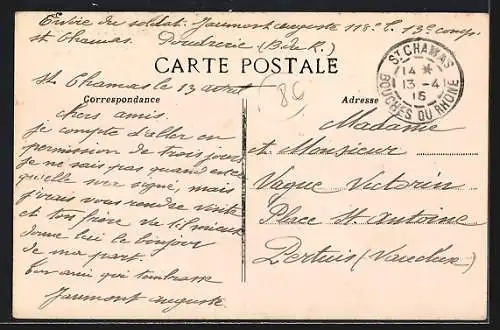 Envoie du soldat. Jaumont auguste 118e t. 13e comp.
St Chamas. Poudrerie (B. du R.)
CARTE POSTALE
St CHAMAS
14 *
13 - 4
15
BOUCHES DU RHONE
St Chamas le 13 avril
86
Correspondance
Adresse
chers amis.
je compte d'aller en
permission de trois jours
je ne sais pas quand encore
qu'elle sera signé, mais
j'irai vous rendre visite
et ton frère va-t-il mieux
donne lui le bonjour
de ma part.
ton ami qui t'embrasse
Jaumont auguste
Madame
et Monsieur
Vague Victorin
Place St. Antoine
Pertuis (Vaucluse)